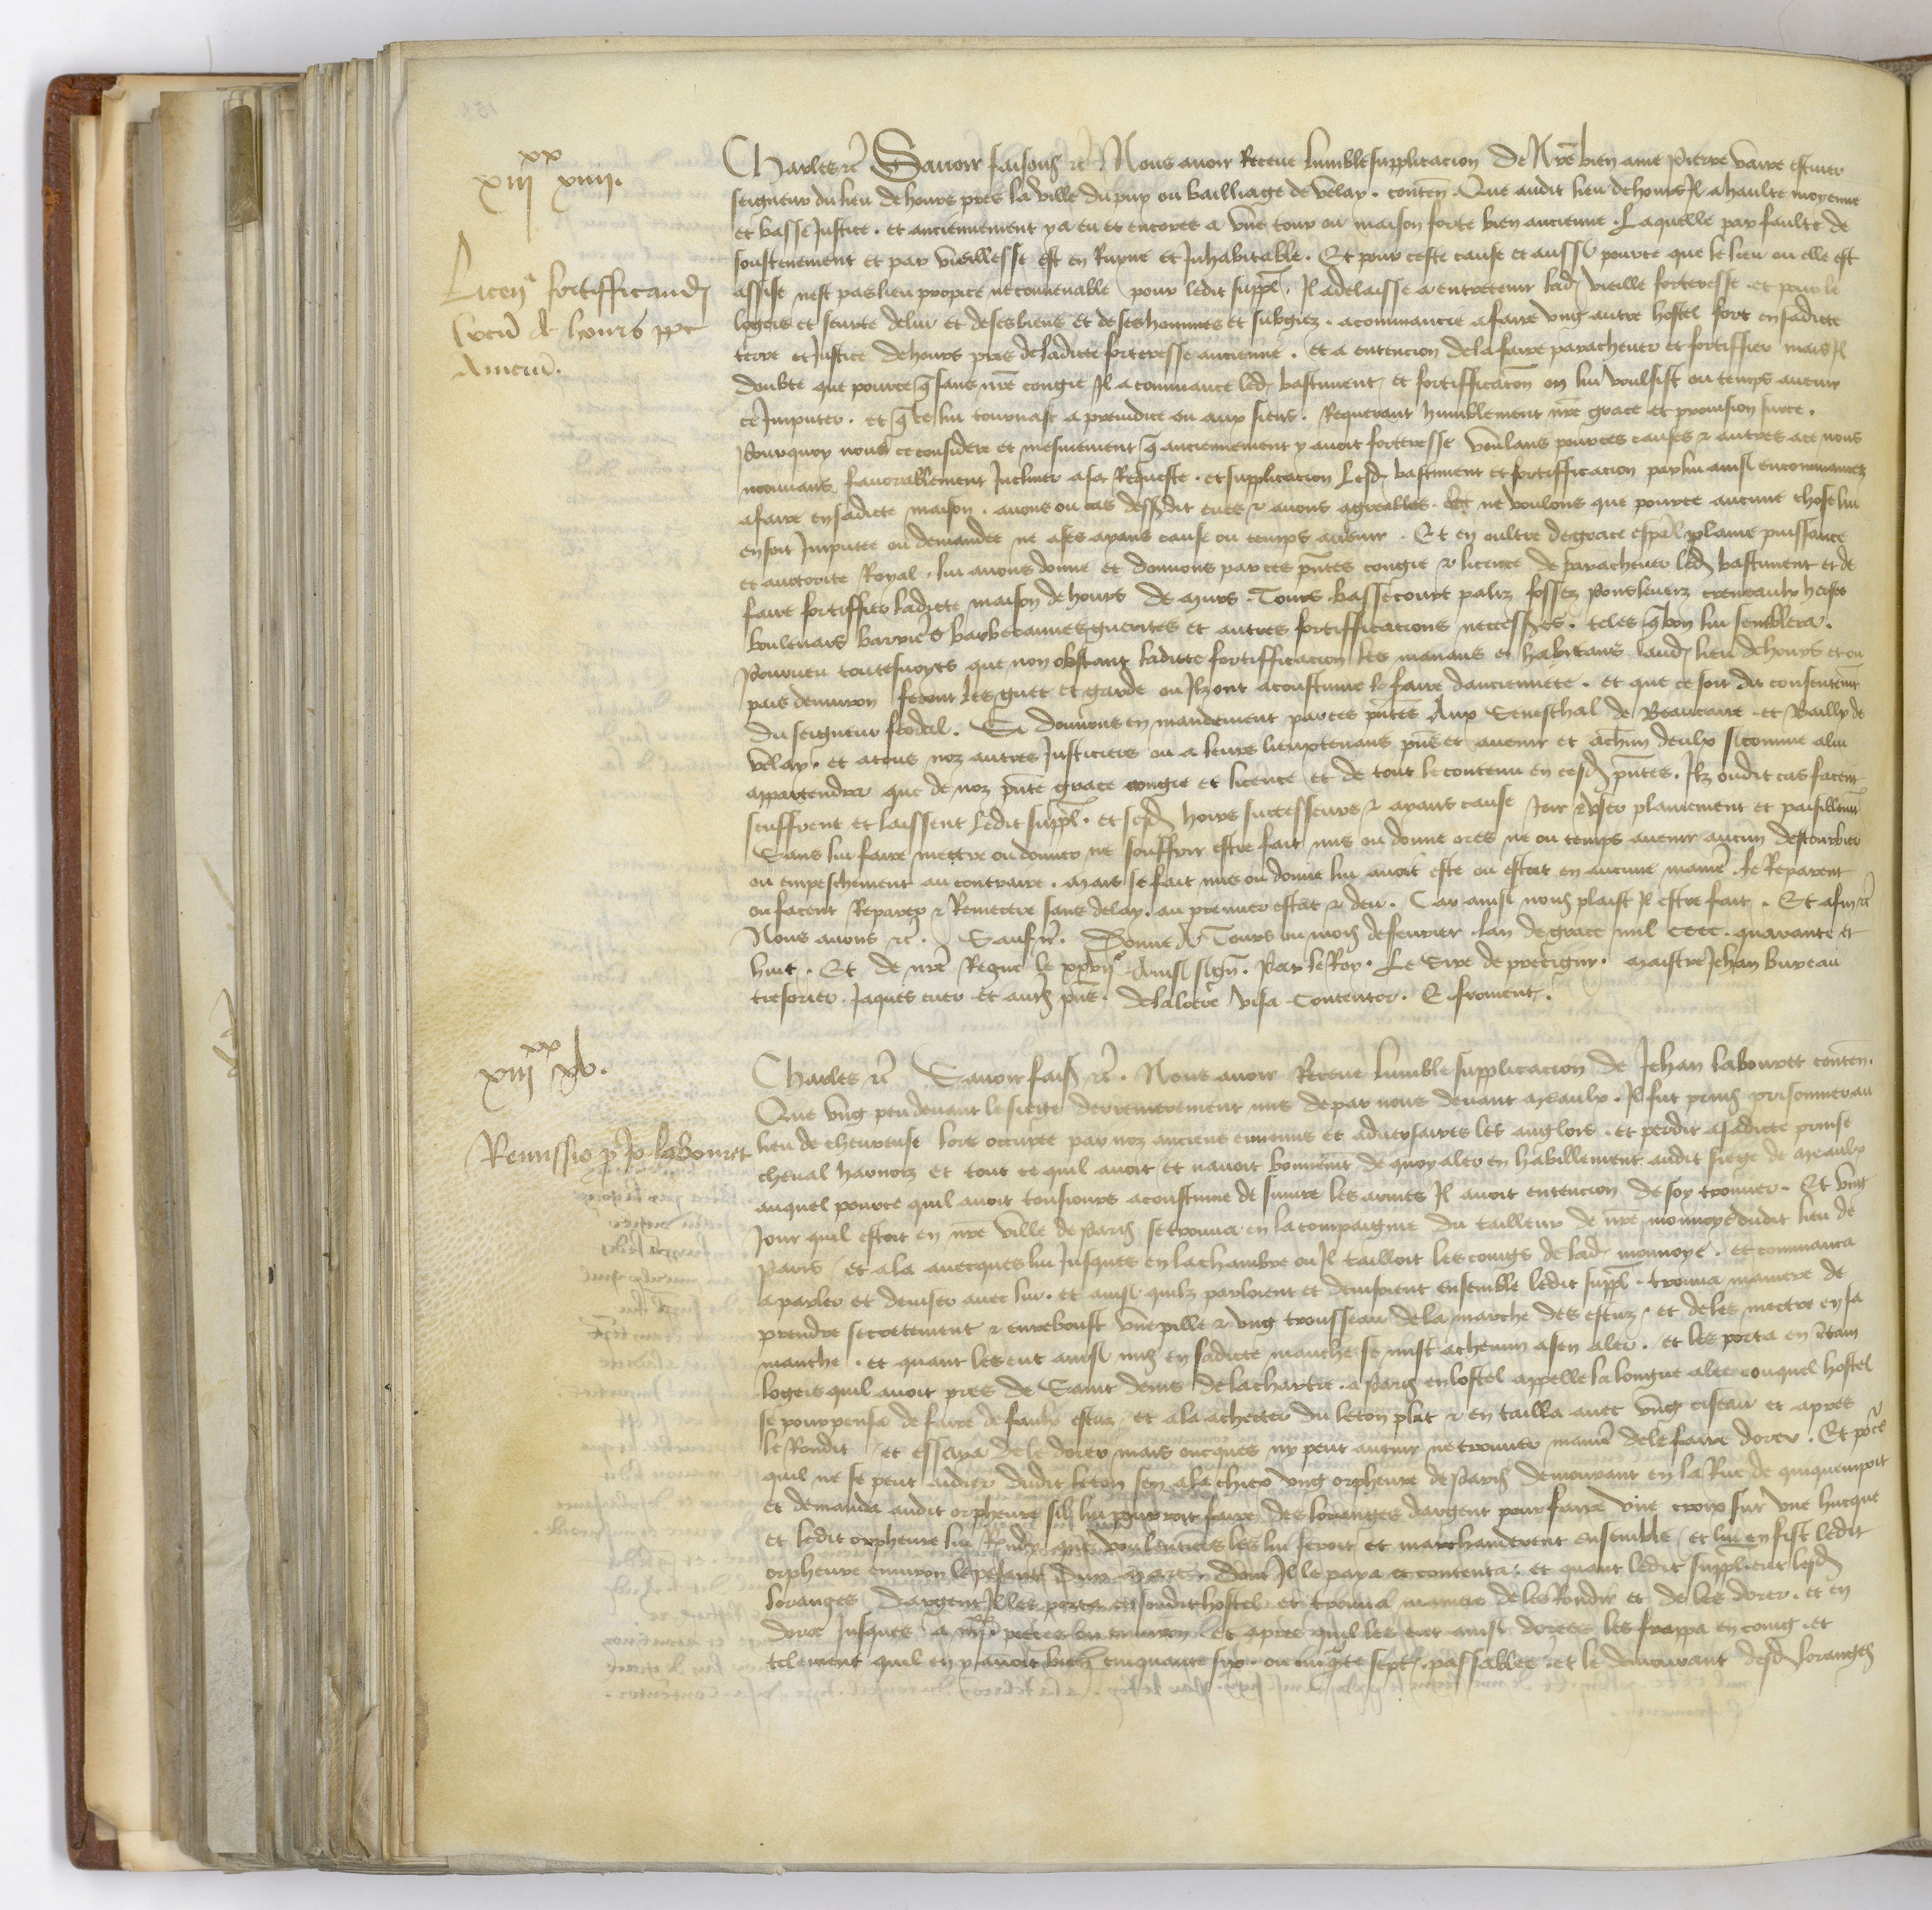 xiii xx xiiii.
Licen fortifficandi
locum de hours prope
Aniciu.
Charles etc Savoir faisons etc Nous avoir Receue lumble supplicacion De Nre bien ame Pierre escuier
seigneur du lieu de hours pres la ville du puy ou bailliage de velay. conten. Que audit lieu de hours Il a haulte moyenne
et basse Justice. et anciennement y a eu et encores a vne tour ou maison forte bien ancienne. Laquelle par faulte de
soustenement et par vieillesse est en Ruyne et Inhabitable. Et pour ceste cause et aussi pource que le lieu ou elle est
assise nest pas lieu propice ne convenable pour ledit suppl. Il a delaisse a entretenir lad vieille forteresse. et pour le
logeis et seurte de lui et de ses biens et de ses hommes et subgiez. a commancie a faire ung autre hostel fort en sadicte
terre et Justice de hours pres de ladicte forteresse ancienne. et a entencion de la faire parachever et fortiffier mais Il
doubte que pource q sans nre congie Il a commance led bastiment et fortifficacion on lui voulsist ou temps avenir
ce Imputer. et q ce lui tournast a preiudice ou aux siens. Requerant humblement nre grace et provision sur ce.
Pourquoy nous ce considere et mesmement q anciennement y avoit forteresse voulans pour ces causes et autres a ce nous
mouvans favorablement Incliner a sa Requeste. et supplicacion Lesd bastiment et fortifficacion par lui ainsi encommancez
a faire en sadicte maison. avons ou cas dessusdit eues et avons agreables. Et ne voulons que pource aucune chose lui
en soit Imputee ou demandee ne a ses ayans cause ou temps avenir. Et en oultre de grace espal plaine puissance
et auctorite Royal. lui avons donne et donnons par ces pntes congie et licence de parachever led bastiment et de
faire fortiffier ladicte maison de hours de murs. Tours. basse court paliz fossez pons leveiz creneaulx herses
boulevars barrieres barbecannes guerites et autres fortifficacions necessres. teles q bon lui semblera.
Pourveu toutesvoyes que non obstant ladicte fortifficacion les manans et habitans oud lieu de hours et ou
pais denviron feront les guet et garde ou Ilz ont acoustume le faire danciennete. et que ce soit du consentemt
du seigneur feodal. Si donnons en mandement par ces pntes Aux Seneschal de Beaucaire et Bailly de
velay. et a tous noz autres Justiciers ou a leurs lieuxtenans pns et avenir et a chun deulx si comme a lui
appartendra que de noz pnte grace congie et licence et de tout le contenu en cesd pntes. Ilz oudit cas facent
seuffrent et laissent ledit suppl. et sesd hoirs successeurs et ayans cause Joir et vser plainement et paisiblemt
Sans lui faire mettre ou donner ne souffrir estre fait mis ou donne ores ne ou temps avenir aucun destourbier
ou empeschement au contraire. Mais se fait mis ou donne lui avoit este ou estoit en aucune maniere. le Reparent
ou facent Reparer et Remectre sans delay. au premier estat et deu. Car ainsi nous plaist Il estre fait. Et afin etc
Nous avons etc. Sauf etc. Donne A Tours ou mois de fevrier. Lan de grace mil CCCC. quarante et
huit. Et de nre Regne le xxvije Ainsi sign. Par le Roy. Le Sire de precigny. Maistre Jehan bureau
tresorier. Jaques cuer et autres pns. Delaloere visa Contentor. E. froment.
xiii xx xv.
Remissio p Jo labouret
Charles etc Savoir fais etc. Nous avoir Receue lumble supplicacion de Jehan labouret conten.
Que ung peu devant le siege derrenierement mis de par nous devant Meaulx. Il fut prins prisonnier au
lieu de chevreuse lors occupee par noz anciens ennemis et adversaires les anglois. et perdit a sadicte prinse
cheval harnoiz et tout ce quil avoit et navoit bonnemt de quoy aler en habillement audit siege de Meaulx
auquel pource quil avoit tousiours acoustume de suivre les armes Il avoit entencion de soy trouver. Et ung
Jour quil estoit en nre ville de Paris se trouva en la compaignie du tailleur de nre monnoye dudit lieu de
Paris et ala avecques lui Jusques en la chambre ou Il tailloit les coings de lad monnoye. et commanca
a parler et deviser avec lui. et ainsi quilz parloient et devisoient ensemble ledit suppl. trouva maniere de
prendre secretement et en vne pille et ung trousseau de la marche des escuz. et de les mectre en sa
manche. et quant les eut ainsi mis en sadicte manche se mist a chemin a sen aler. et les porta en certain
logeis quil avoit pres de Saint denis de la chartre. a Paris en lostel appelle la longue alee ouquel hostel
se pourpensa de faire de faulx escuz. et ala acheter du leton plat et en tailla avec ung ciseau et apres
le Rondit et essaya de le dorer mais oncques ny peut avenir ne trouver maniere de le faire dorer. Et pource
quil ne se peut aidier dudit leton sen ala chiex ung orphevre de Paris demourant en la Rue de quiquempoit
et demanda audit orphevre sil lui pourroit faire des loranges dargent pour faire vne croix sur vne hucque
et ledit orphevre lui Rendy que voulentiers les lui feroit et marchanderent ensemble et lui en fist ledit
orphevre environ le pesant dun marc dont Il le paya et contenta. et quant ledit suppliant lesd
loranges dargent Il les porta en sondit hostel et trouva maniere de les Rondir et de les dorer. et en
dora Jusques a pieces ou environ Et apres quil les eut ainsi dorees les frappa en coing. et
telement quil en y avoit bien cinquante six ou cinqte sept passables. et le demourant desd loranges